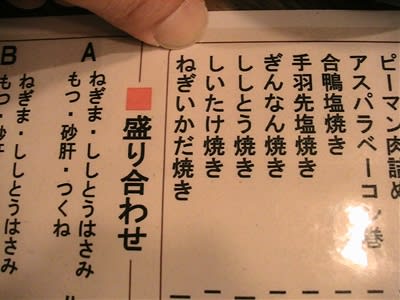 ピーマン肉詰め
アスパラベーコン巻
合鴨塩焼き
手羽先塩焼き
ぎんなん焼き
ししとう焼き
しいたけ焼き
ねぎいかだ焼き
盛り合わせ
A ねぎま・ししとうはさみ
もつ・砂肝・つくね
B ねぎま・ししとうはさみ
もつ・砂肝